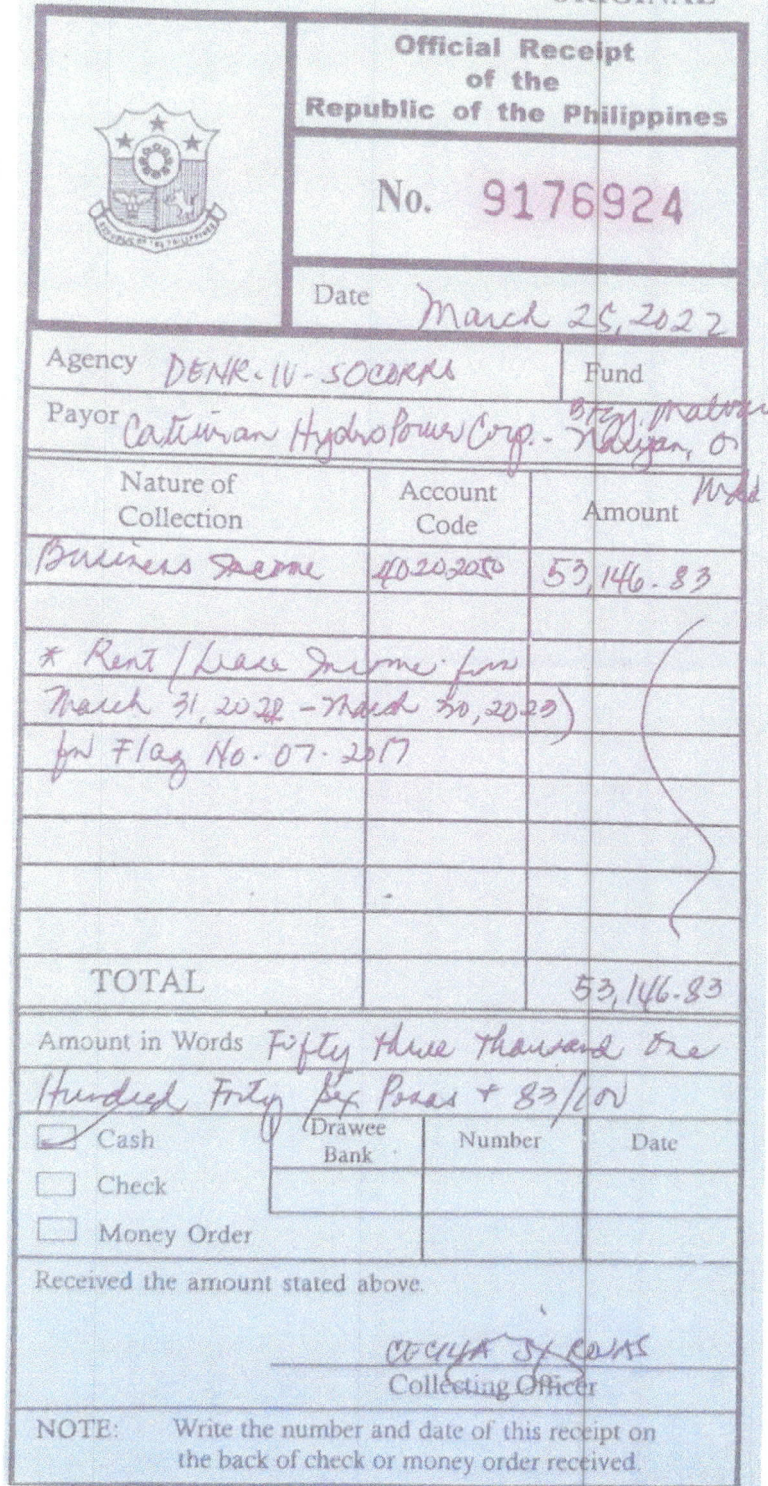 ORIGINAL
Official Receipt
of the
Republic of the Philippines
REPUBLIC OF THE PHILIPPINES
No. 9176924
Date March 25, 2022
Agency DENR-IV-SOCORRO
Fund
Payor Catuiran HydroPower Corp. - Brgy.
Naujan, Or
Mdo
Nature of Collection Account Code Amount
Business Income 40202050 53,146.83
* Rent / Lease Income for
March 31, 2022 - March 30, 2023)
for Flag No. 07-2017
TOTAL 53,146.83
Amount in Words Fifty three Thousand One
Hundred Forty Six Pesos + 83/100
Cash Drawee Bank Number Date
Check
Money Order
Received the amount stated above.
CECILIA ROJAS
Collecting Officer
NOTE: Write the number and date of this receipt on
the back of check or money order received.